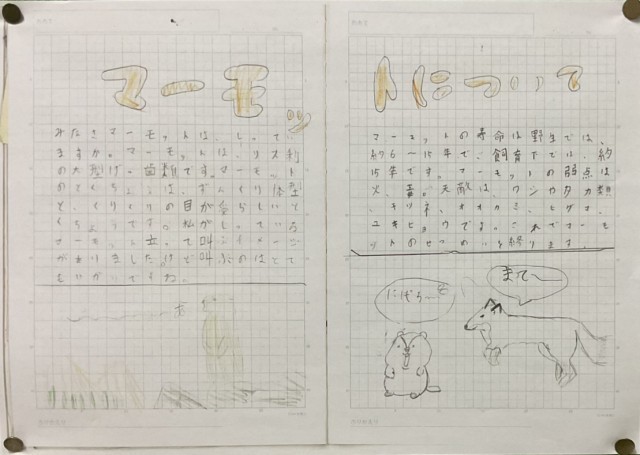 マーモットについて
みなさんマーモットは、しって
ますか。マーモットは、リス科
の大型げっ歯類です。マーモット
のとくちょうは、ずんぐり体型
と、くりくりの目が愛らしい
くちょうです。私が
マーモットは立って叫ぶイメージ
がありましたけど叫ぶのはとて
もいがいですね。
あ
マーモットの寿命は野生では、
約6〜15年で、飼育下では、約
15年です。マーモットの弱点は
火、毒。天敵は、ワシやタカ類
、キツネ、オオカミ、ヒグマ、
ユキヒョウです。これでマーモ
ットのせつめいを終ります。
まて〜
にげろ〜